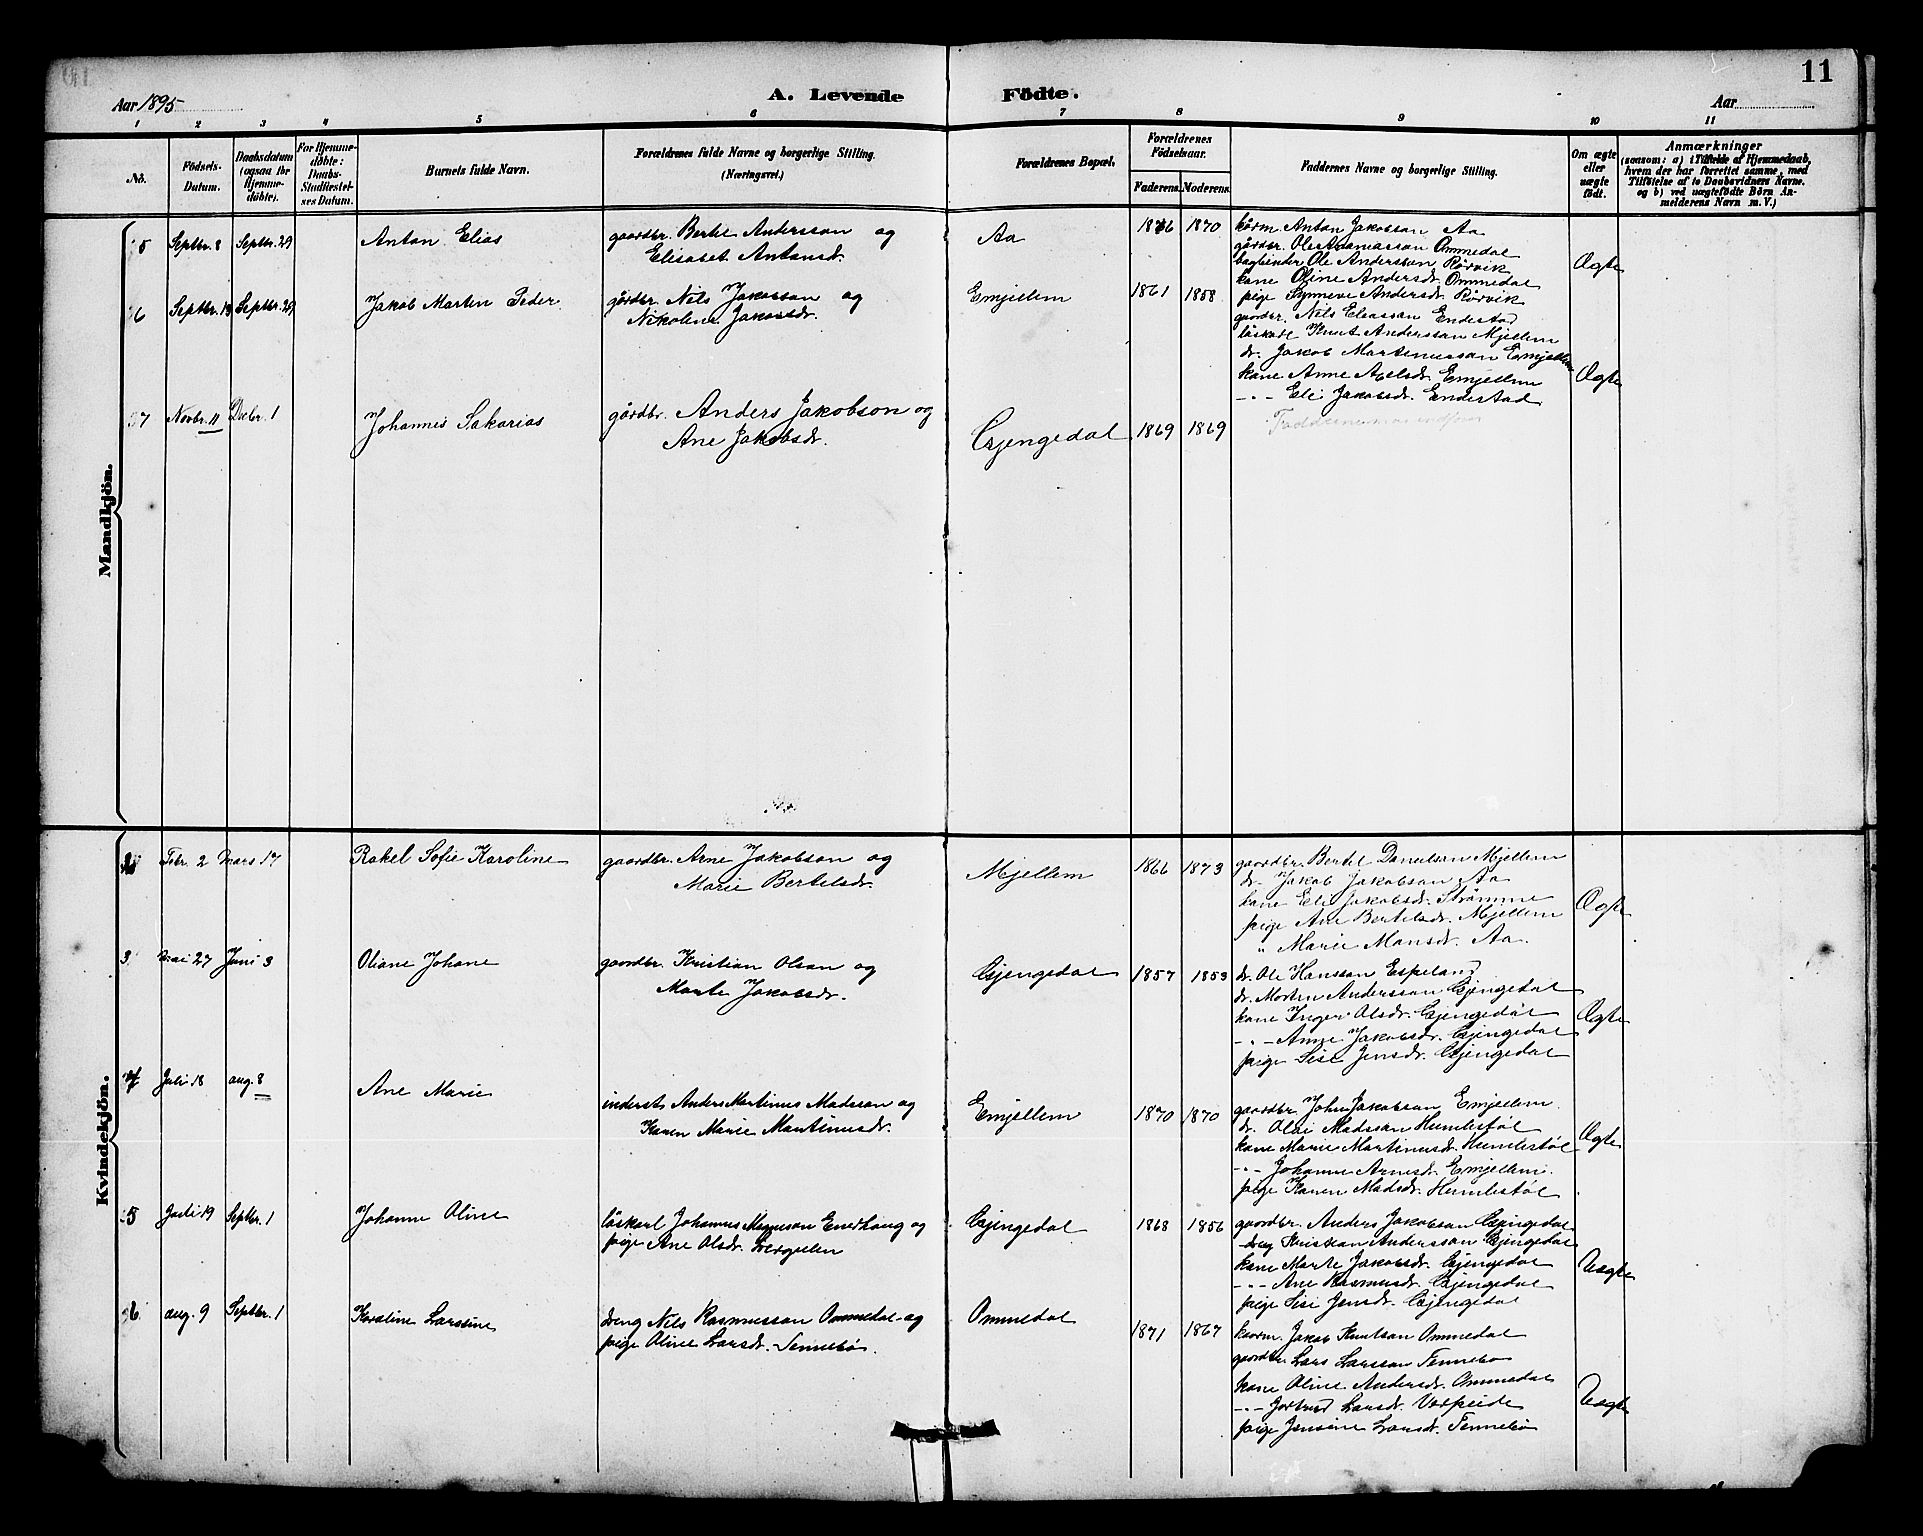 11
Aar 1895
A. Levende Födte.
Aar
1 2 3 4 5 6 7 8 9 10 11
No.
Födsels-Datum.
Daabsdatum (ogsaa for Hjemme-döbte).
For Hjemme-döbte: Daabs-Stadfæstel-ses Datum.
Barnets fulde Navn.
Forældrenes fulde Navne og borgerlige Stilling.
(Næringsvei.)
Forældrenes Bopæl.
Forældrenes Födselsaar.
Faderens. Moderens.
Faddernes Navne og borgerlige Stilling.
Om ægte eller uægte födt.
Anmærkninger
(saasom: a) i Tilfælde af Hjemmedaab,
hvem der har forrettet samme, med
Tilföielse af to Daabsvidners Navne.
og b) ved uægtefödte Börn An-
melderens Navn m. V.)
Mandkjön.
5 Septbr. 8 Septbr. 29 Anton Elias
gaardbr. Bertel Andersson og
Elisabet Antonsd.
Aa 1866 1870
kårm. Anton Jakobson Aa
gårdbr. Ole Rasmusson Ommedal
bagbinder Ole Anderssen Rørvik
kone Oline Andersdr. Ommedal
pige Synneve Andersdr. Rørvik
Ægte
6 Septbr. 13 Septbr. 29 Jakob Martin Peder
gårdbr. Nils Jakobson og
Nikoline Jakobsdr.
Emjellem 1861 1858
gaardbr. Nils Eliassan Endestad
låskarl Knut Anderssan Mjellem
dr. Jakob Martinussan Emjellem
kone Anne Abelsdr. Emjellem
-"- Eli Jakobsdr. Endestad
Ægte
7 Novbr. 11 Decbr. 1 Johannes Sakarias
gårdbr. Anders Jakobson og
Ane Jakobsdr.
Gjengedal 1869 1869
Kvindekjön.
Febr. 2 Mars 17 Rakel Sofie Karoline
gaardbr. Arne Jakobson og
Marie Bertelsdr.
Mjellem 1866 1873
gaardbr. Bertel Danielsan Mjellem
dr. Jakob Jakobsan Aa
kone Eli Jakobsdr. Strømme
pige Ane Bertelsdr. Mjellem
" Marie Monsdr. Aa.
Ægte
3 Mai 27 Juni 3 Oliane Johane
gaardbr. Kristian Olsan og
Marte Jakobsdr.
Gjengedal 1857 1853
dr. Ole Hanssan Espeland
dr. Morten Anderssan Gjengedal
kone Inger Olsdr. Gjengedal
-"- Anne Jakobsdr. Gjengedal
pige Sise Jensdr. Gjengedal
Ægte
4 Juli 18 aug. 8 Ane Marie
inderst Anders Martinus Madssan og
Karen Marie Martinusdr.
Emjellem 1870 1870
gaardbr. John Jakobsan Emjellem.
dr. Olai Madssan Humlestøl
kone Marie Martinusdr. Humlestøl
-"- Johanne Arnesdr. Emjellem.
pige Karen Madsdr. Humlestøl
Ægte
5 Juli 19 Septbr. 1 Johanne Oline
låskarl Johannes Magneson Enerhaug og
pige Ane Olsdr.
Gjengedal 1868 1856
gaardbr. Anders Jakobsan Gjengedal
dreng Kristian Anderssan Gjengedal
kone Marte Jakobsdr. Gjengedal
-"- Ane Rasmusdr. Gjengedal
pige Sise Jensdr. Gjengedal
Uægte
6 aug. 9 Septbr. 1 Karoline Larsine
dreng Nils Rasmusson Ommedal og
pige Oline Larsdr. Tennebø.
Ommedal 1871 1867
kaarm. Jakob Knutsan Ommedal
gaardbr. Lars Larssan Tennebø
kone Oline Andersdr. Ommedal
-"- Jertrud Larsdr. Vospeide
pige Jensine Larsdr. Tennebø
Uægte